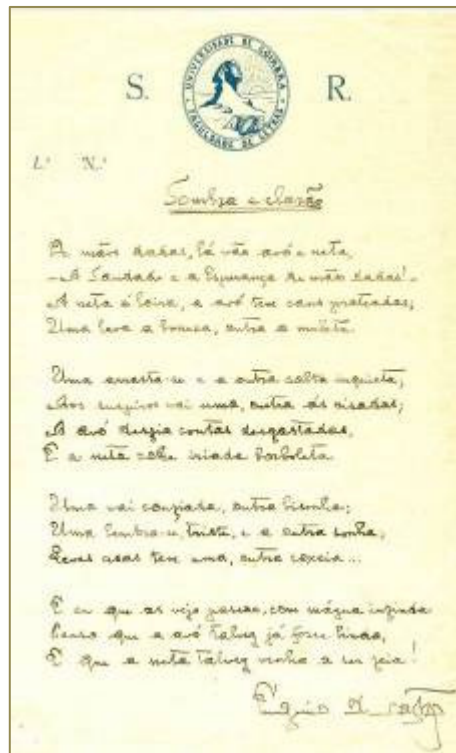 UNIVERSIDADE DE COIMBRA
S. R.
FACULDADE DE LETRAS
L.º N.º
Sombra e clarão
De mãos dadas, lá vão avó e neta,
—A Saudade e a Esperança de mãos dadas!—
A neta é loira, a avó tem cans prateadas;
Uma leva a boneca, outra a muleta.
Uma arrasta-se e a outra salta inquieta;
Aos suspiros vai uma, outra ás risadas;
A avó desfia contas desgastadas,
E a neta colhe iriada borboleta.
Uma vai confiada, outra bisonha;
Uma lembra-se, triste, e a outra sonha;
Leves asas tem uma, outra coxeia...
E eu que as vejo passar, com mágua infinda
Penso que a avó talvez já fosse linda,
E que a neta talvez venha a ser feia!
Eugénio de Castro